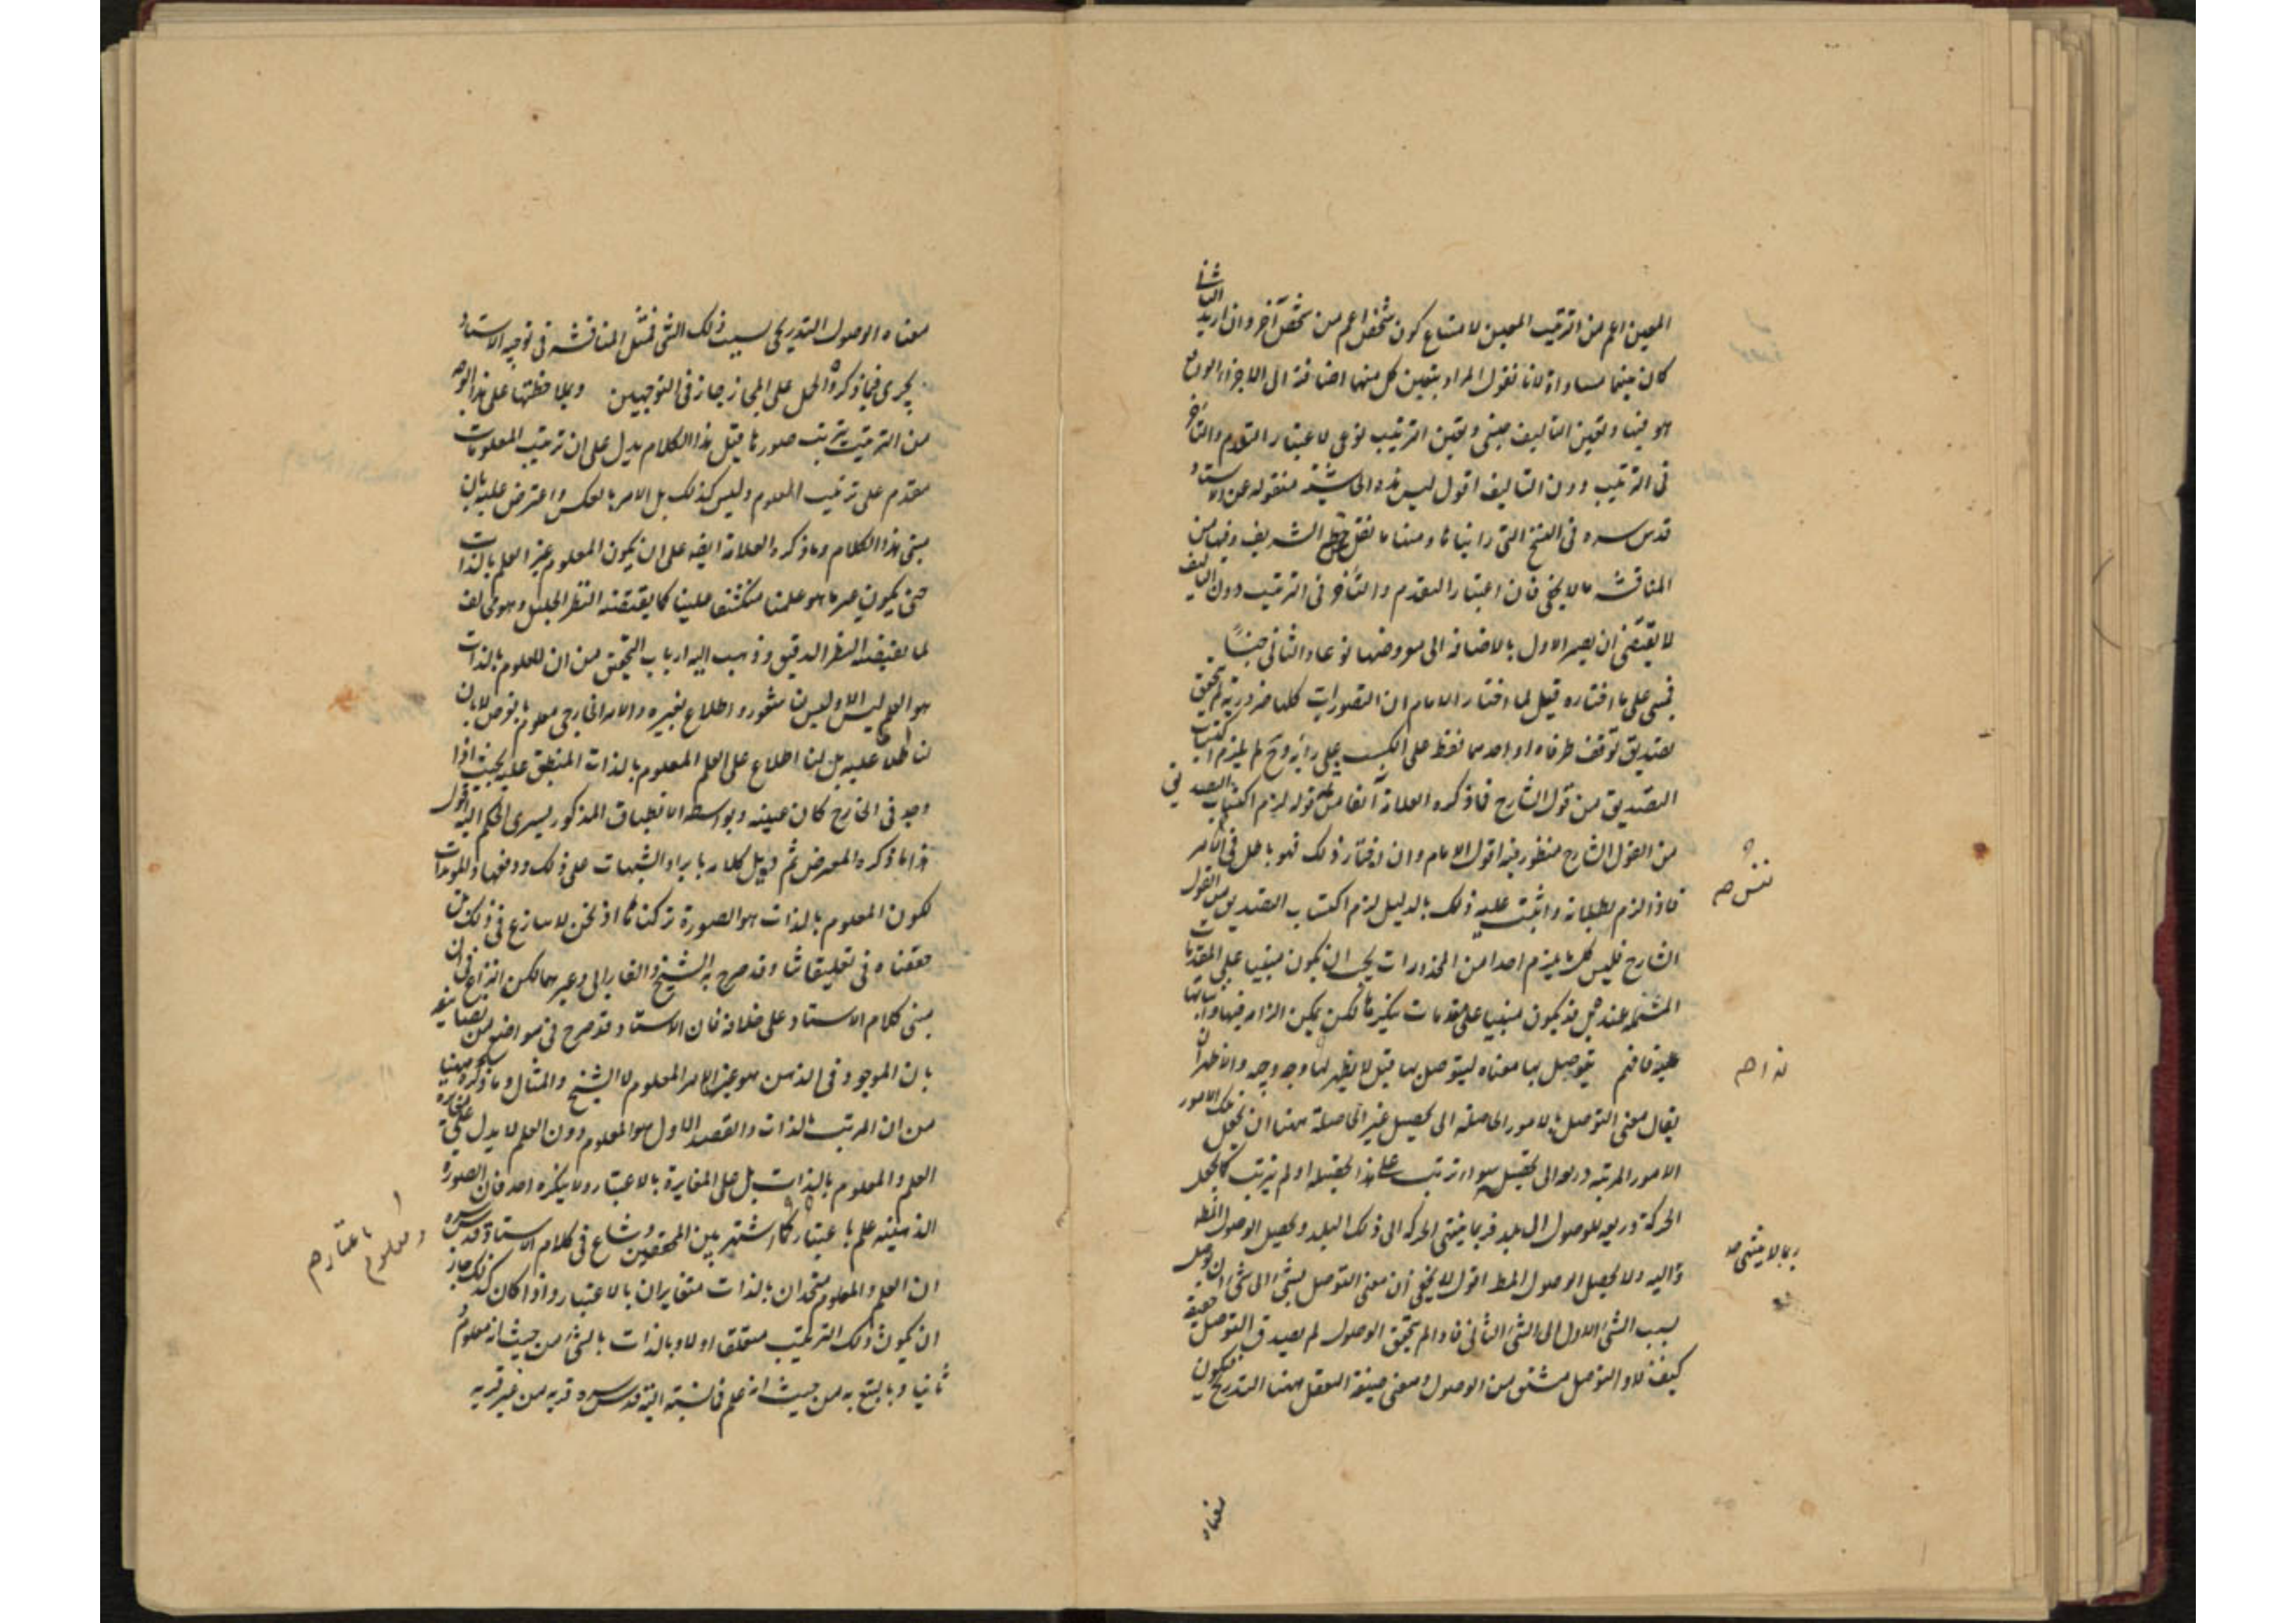 المعين اعم من الترتيب المعين لامتناع كون شخص اعم من شخص آخر وان اريد الثاني
كان بينهما مساواة لانا نقول المراد بتعين كل منهما اضافته الى الاجزاء الواقع
هو فيها وتعين التاليف جنسي وتعين الترتيب نوعي لاعتبار التقدم والتاخر
في الترتيب دون التاليف اقول ليس هذه الحاشية منقوله عن الاستاد
قدس سره في النسخ التي رايناها ومنها ما نقل خطه الشريف وفيها من
المناقشه ما لا يخفى فان اعتبار التقدم والتأخر في الترتيب دون التاليف
لا يقتضى ان يصير الاول بالاضافه الى معروضها نوعا والثاني جنسًا
فمبني على ما اختاره قيل لما اختار الامام ان التصورات كلها ضرورية لم يتحقق
تصديق توقف طرفاه او احدهما فقط على الكسب على رأيه وح لم يلزم اكتساب
التصديق من قول الشارح فما ذكره العلامة آنفا من قوله لزم اكتساب التصديق
من القول الشارح منظور فيه اقول الامام وان اختار ذلك فهو باطل في نفس الامر
فاذا الزم بطلانه واثبت عليه ذلك بالدليل لزم اكتساب التصديق من القول
الشارح فليس كل ما يلزم احدا من المحذورات يجب ان يكون مبنيا على المقدمات
المسلمه عنده بل قد يكون مبنيا على مقدمات ينكرها لكن يمكن الزامه فيها واثباتها
عليه فافهم ليتوصل بها معناه ليتوصل بها قيل لا يظهر لها وجه وجيه والاظهر ان
يقال معنى التوصل بالامور الحاصله الى تحصيل غير الحاصلة ههنا ان تجعل تلك الامور
الامور المرتبه ذريعه الى تحصيل سواء ترتب على هذا تحصيله او لم يترتب كما تجعل
الحركة ذريعه للوصول الى بلد فربما ينتهى الحركه الى ذلك البلد ويحصل الوصول المط
واليه ولا يحصل الوصول المط اقول لا يخفى ان معنى التوصل بشئ الى شئ ان يوصل
بسبب الشئ الاول الى الشئ الثاني فاذا لم يتحقق الوصول لم يصدق التوصل حقيقة
كيف لا والتوصل مشتق من الوصول ومعنى صيغة التفعل ههنا التدريج فيكون
معناه
نفس صح
هذا صح
ربما لا ينتهى صح
معناه الوصول التدريجي بسبب ذلك الشئ فمثل المناقشه في توجيه الاستاد
يجرى فيما ذكره والحمل على المجاز جاز في التوجيهين وبملاحظتها على هذا الوجه
من الترتيب يترتب صورها قيل هذا الكلام يدل على ان ترتيب المعلومات
مقدم على ترتيب العلوم وليس كذلك بل الامر بالعكس واعترض عليه بان
مبنى هذا الكلام وما ذكره العلامة ايضا على ان يكون المعلوم غير العلم بالذات
حتى يكون غير ما هو علمنا منكشفا علينا كما يقتضيه النظر الجليل وهو مخالف
لما يقتضيه النظر الدقيق وذهب اليه ارباب التحقيق من ان المعلوم بالذات
هو العلم ليس الا وليس لنا شعور واطلاع بغيره والامر الخارجي معلوم بالعرض لا بان
لنا اطلاعا عليه بل لنا اطلاع على العلم المعلوم بالذات المنطبق عليه بحيث اذا
وجد في الخارج كان عينه وبواسطه الانطباق المذكور يسرى الحكم اليه اقول
هذا ما ذكره المعترض ثم ذيل كلامه بايراد الشبهات على ذلك ودفعها والمويدات
لكون المعلوم بالذات هو الصورة تركناها اذ نحن لا ننازع في ذلك بل
حققناه في تعليقاتنا وقد صرح به الشيخ والفارابي وغيرهما لكن النزاع في ان
مبنى كلام الاستاد على خلافه فان الاستاد قد صرح في مواضع من تصانيفه
بان الموجود في الذهن هو عين الامر المعلوم لا الشبح والمثال وما ذكره ههنا
من ان المرتب بالذات والقصد الاول هو المعلوم دون العلم لا يدل على مغايرة
العلم والمعلوم بالذات بل على المغايرة بالاعتبار ولا ينكره احد فان الصورة
الذهنيه علم باعتبار كما اشتهر بين المحققين وشاع في كلام الاستاد قدس سره
ان العلم والمعلوم متحدان بالذات متغايران بالاعتبار واذا كان كذلك جاز
ان يكون ذلك الترتيب متعلقا اولا وبالذات بالشئ من حيث انه معلوم و
ثانيا وبالتبع به من حيث انه علم فانسبته اليه قدس سره فريه من غير مريه
ومعلوم باعتبار صح